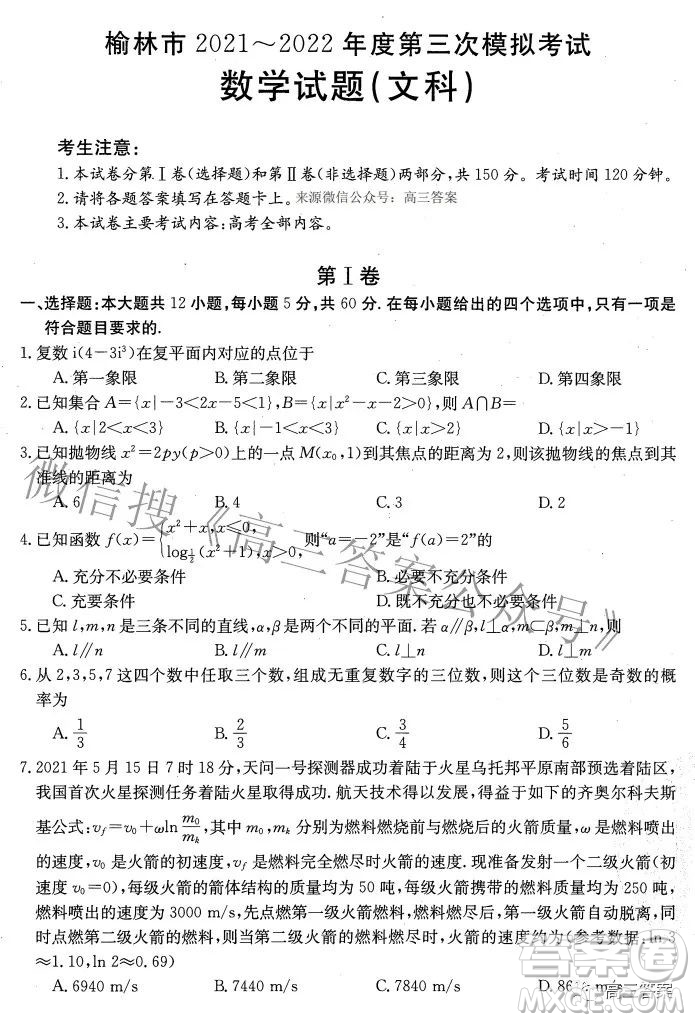 榆林市 2021～2022 年度第三次模拟考试
数学试题(文科)
考生注意:
1.本试卷分第Ⅰ卷(选择题)和第Ⅱ卷(非选择题)两部分,共 150 分。考试时间 120 分钟。
2.请将各题答案填写在答题卡上。 来源微信公众号：高三答案
3.本试卷主要考试内容:高考全部内容。
第Ⅰ卷
一、选择题:本大题共 12 小题,每小题 5 分,共 60 分.在每小题给出的四个选项中,只有一项是
符合题目要求的.
1.复数 i(4－3i³)在复平面内对应的点位于
A.第一象限 B.第二象限 C.第三象限 D.第四象限
2.已知集合 A={x|－3<2x－5<1},B={x|x²－x－2>0},则 A∩B=
A.{x|2<x<3} B.{x|－1<x<3} C.{x|x>2} D.{x|x>－1}
3.已知抛物线 x²=2py(p>0)上的一点 M(x₀,1)到其焦点的距离为 2,则该抛物线的焦点到其
准线的距离为
A.6 B.4 C.3 D.2
4.已知函数 f(x)={x²+x,x≤0, log_{1/2}(x²+1),x>0, 则“a=－2”是“f(a)=2”的
A.充分不必要条件 B.必要不充分条件
C.充要条件 D.既不充分也不必要条件
5.已知 l,m,n 是三条不同的直线,α,β 是两个不同的平面.若 α∥β,l⊥α,m⊂β,n⊥β,则
A.l∥n B.m∥n C.l⊥n D.l⊥m
6.从 2,3,5,7 这四个数中任取三个数,组成无重复数字的三位数,则这个三位数是奇数的概
率为
A.1/3 B.2/3 C.3/4 D.5/6
7.2021 年 5 月 15 日 7 时 18 分,天问一号探测器成功着陆于火星乌托邦平原南部预选着陆区,
我国首次火星探测任务着陆火星取得成功.航天技术得以的发展,得益于如下的齐奥尔科夫斯
基公式:v_f=v₀+ωln m₀/m_k,其中 m₀,m_k 分别为燃料燃烧前与燃烧后的火箭质量,ω 是燃料喷出
的速度,v₀ 是火箭的初速度,v_f 是火箭燃料完全燃尽时火箭的速度.现准备发射一个二级火箭(
v₀=0),每级火箭的箭体结构的质量均为 50 吨,每级火箭携带的燃料质量均为 250 吨,
燃料喷出的速度为 3000 m/s,先点燃第一级火箭燃料,燃尽时,第一级火箭自动脱离,同时
点燃第二级火箭的燃料,则当第二级火箭的燃料燃尽时,火箭的速度约为(参考数据:ln 3
≈1.10,ln 2≈0.69)
A.6940 m/s B.7440 m/s C.7840 m/s D.
微信搜《高三答案公众号》
高三答案
答案圈
MXQE.COM